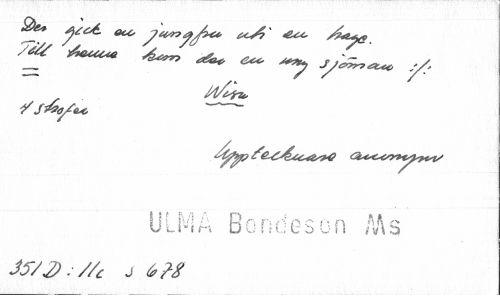 Der gick en jungfru uti en hage.
Till henne kom der en ung sjöman :/:
Wisa
4 strofer
Upptecknare anonym
ULMA Bondeson Ms
351 D : 11c s 678